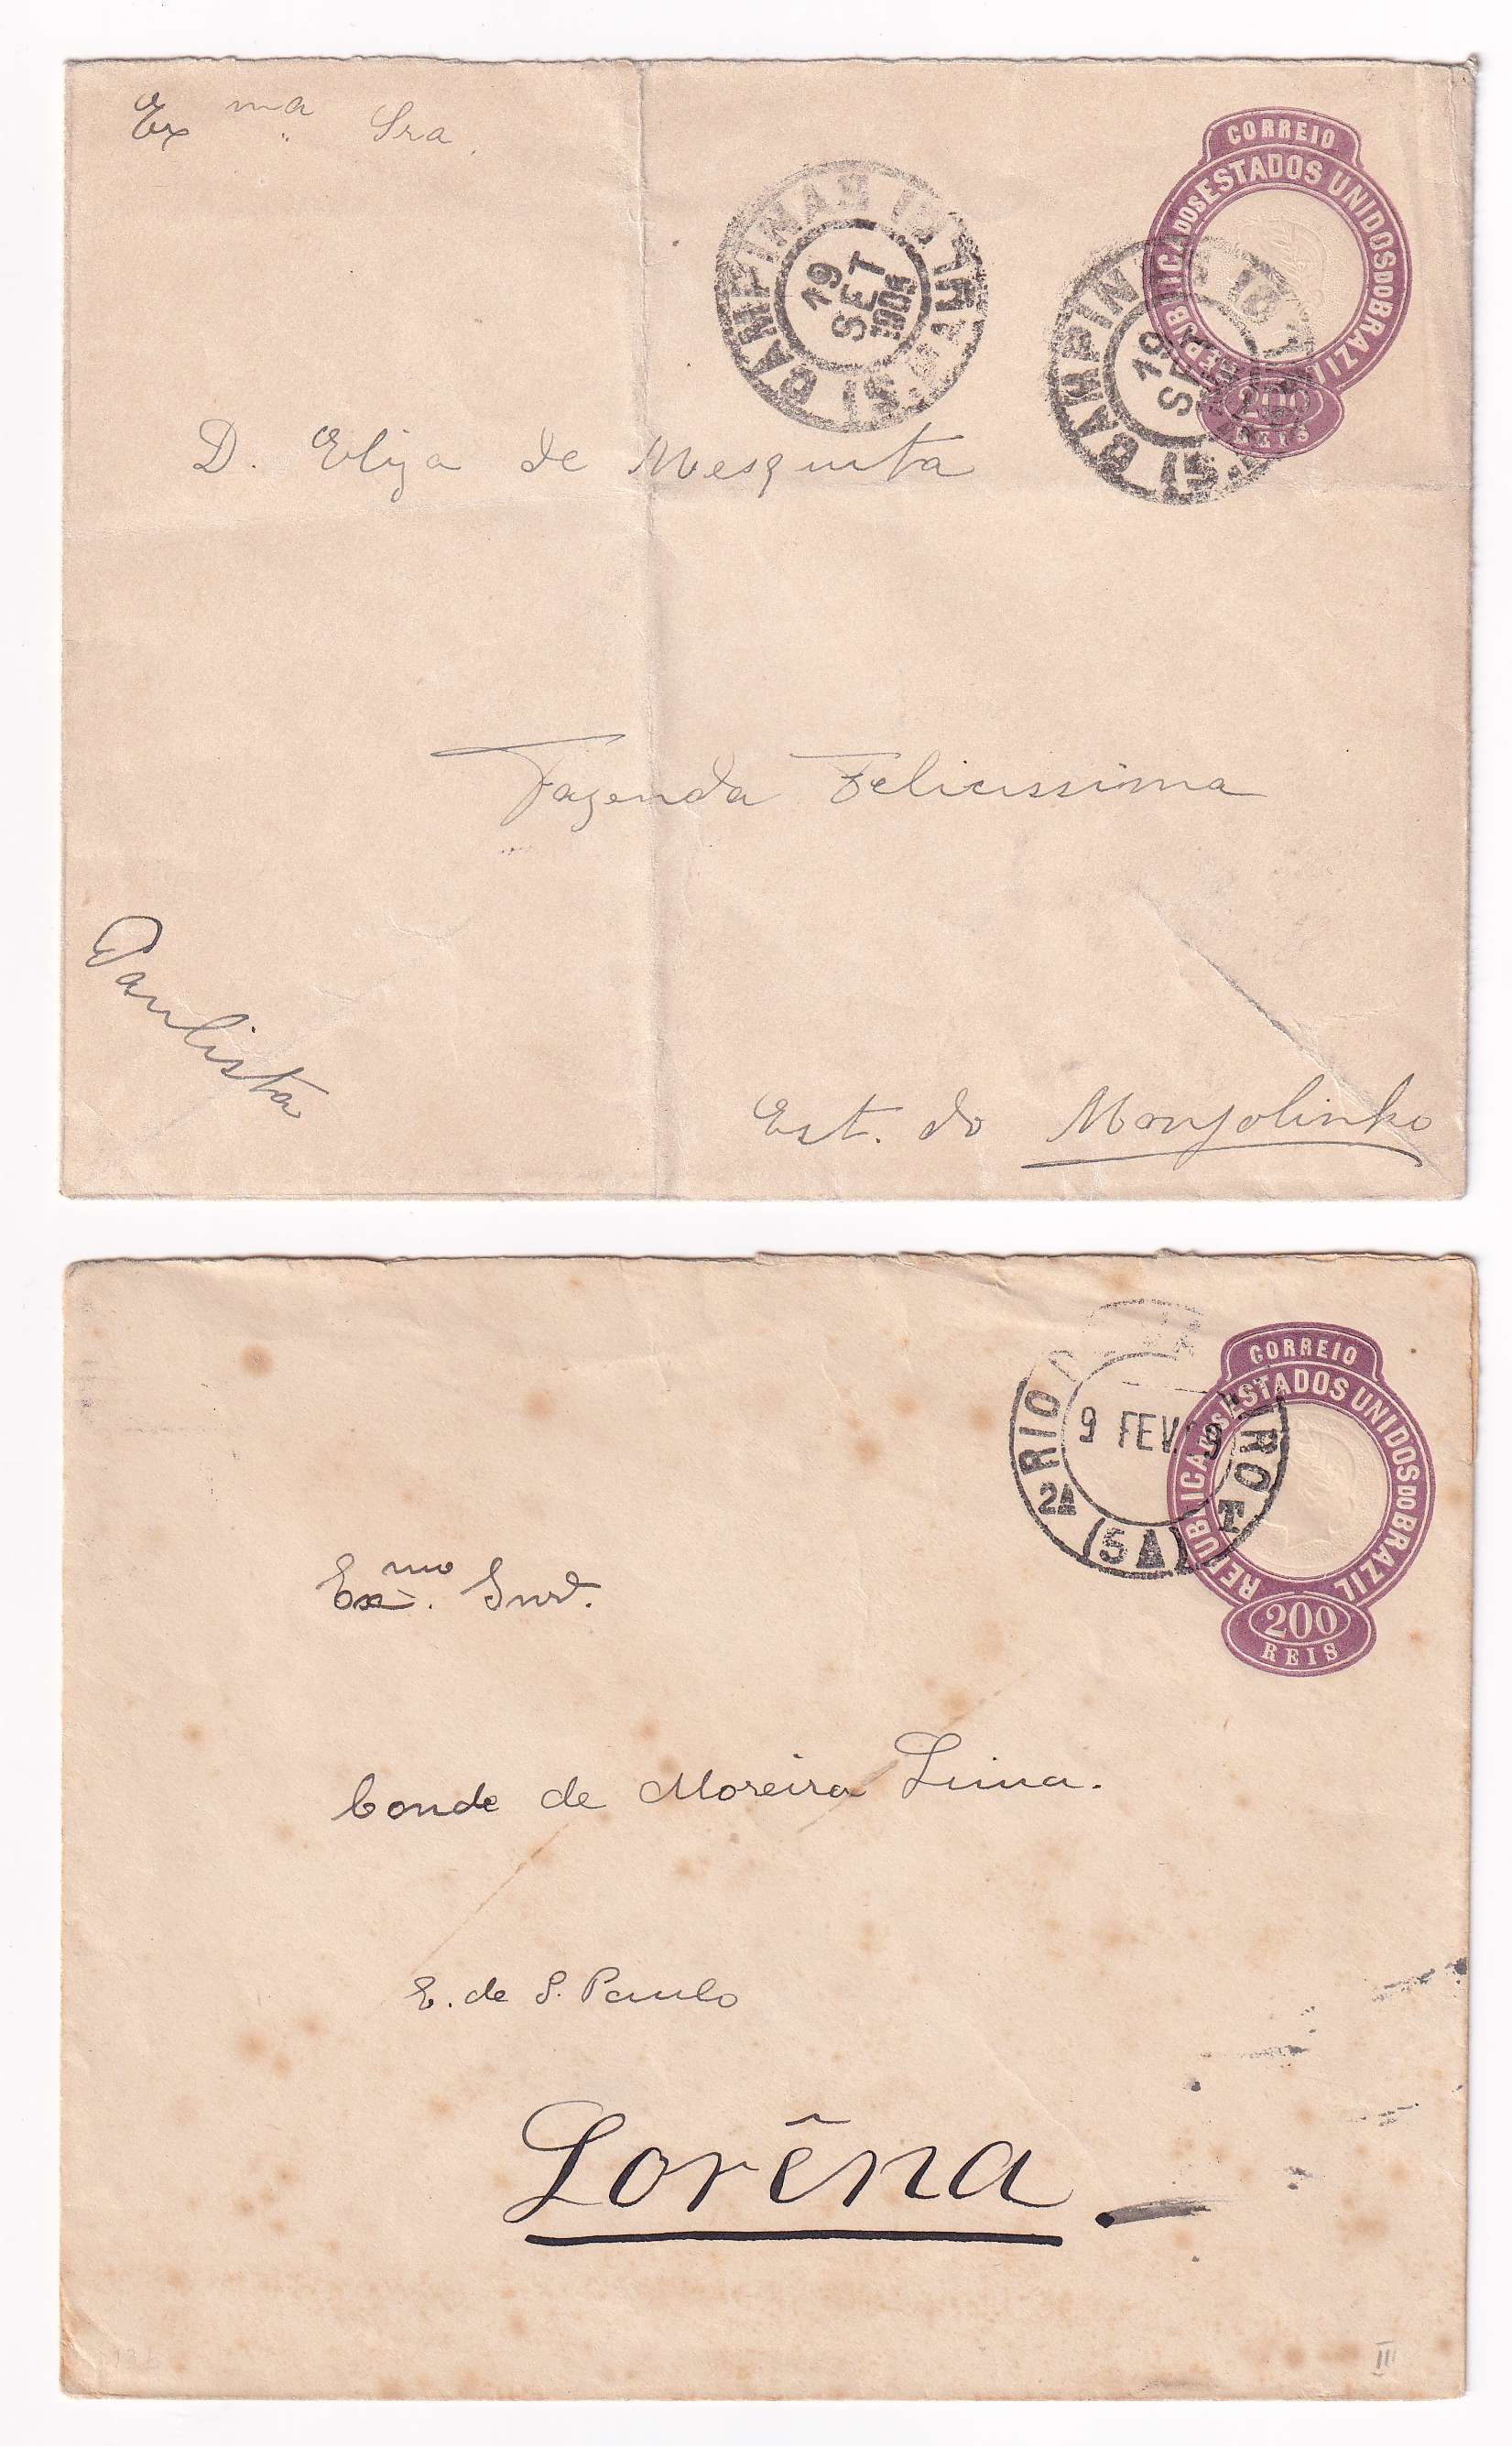 Ex ma. Sra.
CORREIO
REPUBLICA DOS ESTADOS UNIDOS DO BRAZIL
200
REIS
CAMPINAS
19
SET
1905
CAMPIN
19
SE
D. Eliza de Mesquita
Fazenda Felicissima
Paulista
Est. do Monjolinho
CORREIO
REPUBLICA DOS ESTADOS UNIDOS DO BRAZIL
200
REIS
RIO D
IRO
9 FEV. 9
2A (5A) T
Exmo. Snr.
Conde de Moreira Lima.
E. de S. Paulo
Lorêna.
III